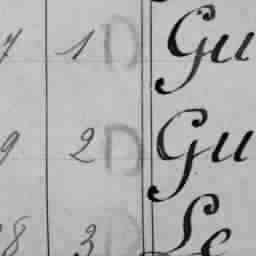 7 1 D Gu
9 2 D Gu
8 3 D Le